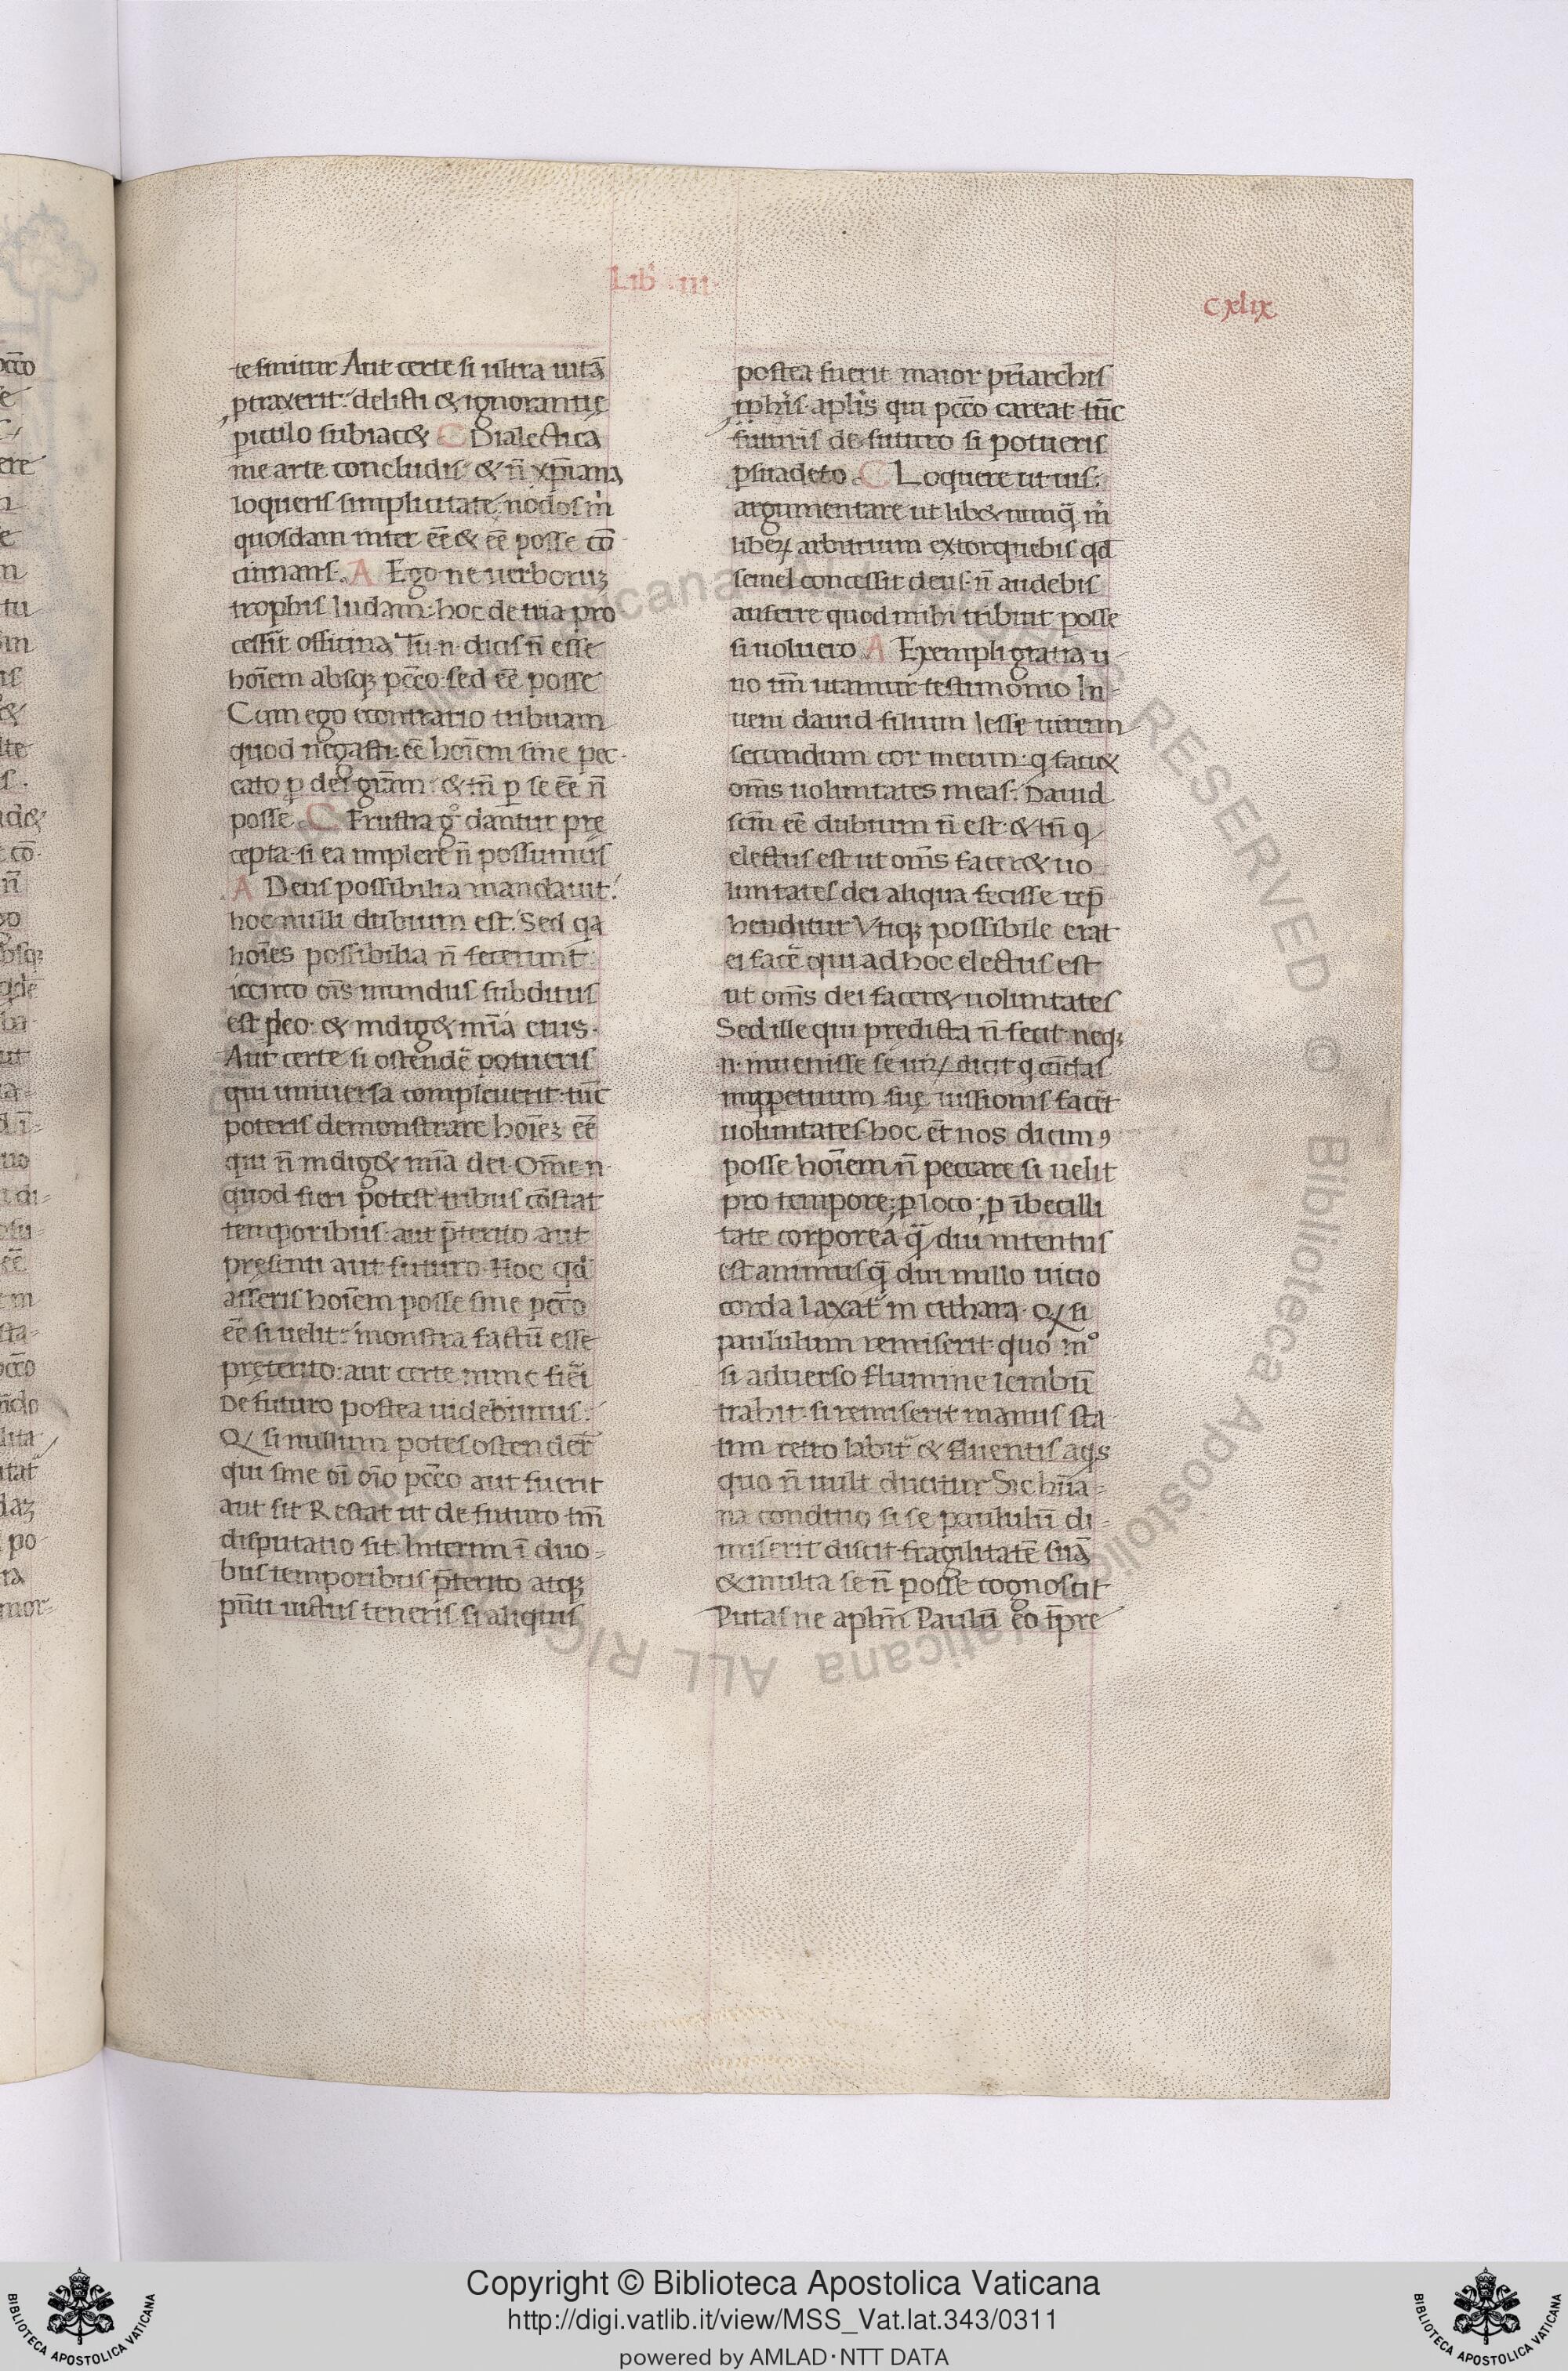 Lib iii
cxlix
te finitur Aut certe si ultra uitā
ptraxerit: delicti & ignorantię
piculo subiac& C Dialectica
me arte concludis & n̄ xp̄iana
loqueris simplicitate: nodos m̄
quosdam inter eē & eē posse cō
cinnans. A Ego ne uerboruȝ
trophis ludam: hoc de tria pro
cessit officina Tu n dicis n̄ esse
hoīem absqȝ pcc̄o sed eē posse
Cum ego econtrario tribuam
quod negasti: eē hoīem sine pec
cato p dei grām: & tn̄ p se eē n̄
posse C Frustra g° dantur pre
cepta si ea implere n̄ possumus
A Deus possibilia mandauit:
hoc nulli dubium est. Sed qa
hoīes possibilia n̄ fecerunt:
iccirco oīs mundus subditus
est deo & indig& mīa eius.
Aut certe si ostendē potueris
qui uniuersa compleuerit: tūc
poteris demonstrare hoīeȝ eē
qui n̄ indig& mīa dei. Om̄e n
quod fieri potest tribus cōstat
temporibus: aut p̄terito aut
presenti aut futuro. Hoc qd
asseris hoīem posse sine pcc̄o
eē si uelit: monstra factū esse
pręterito: aut certe nunc fieī
De futuro postea uidebimus:
Qɖ si nullum potes ostendeē
qui sine oī oīo pcc̄o aut fuerit
aut sit Restat ut de futuro tm̄
disputatio sit. Interim ī duo=
bus temporibus p̄terito atqȝ
pn̄ti uictus teneris si aliquis
postea fuerit maior pr̄iarchis
ꝓphis aplis qui pcc̄o careat tūc
futuris de futuro si potueris
psuadeto. C Loquere ut uis:
argumentare ut lib& nunq̄ m̄
libeꝝ arbitrium extorquebis qd
semel concessit deus n̄ audebis
auferre quod mihi tribuit posse
si uoluero. A Exempli gratia u
no tm̄ utamur testimonio In=
ueni dauid filium Iesse uirum
secundum cor meum: q faci&
om̄s uoluntates meas: Dauid
scm̄ eē dubium n̄ est: & tn̄ q
electus est ut om̄s facer& uo
luntates dei aliqua fecisse rep̄
henditur Vtiqȝ possibile erat
ei facē qui ad hoc electus est
ut om̄s dei facer& uoluntates
Sed ille qui predicta n̄ fecit neqȝ
n inuenisse se uiꝝ dicit q cūctas
inppetuum suę iussionis facēt
uoluntates hoc et nos dicimꝰ
posse hoīem n̄ peccare si uelit
pro tempore: p loco: p ībecilli
tate corporea q̄ diu intentus
est animus q̄ diu nullo uicio
corda laxat in cithara. Qɖ si
paululum remiserit quo m°
si aduerso flumine lembū
trahit si remiserit manus sta
tim retro labit & fluentis aqs
quo n̄ uult ducitur Sic hūa=
na conditio si se paululū di=
miserit discit fragilitatē suā
& multa se n̄ posse cognoscit
Putas ne aplm̄ Paulū eo tp̄re
Copyright © Biblioteca Apostolica Vaticana
http://digi.vatlib.it/view/MSS_Vat.lat.343/0311
powered by AMLAD·NTT DATA